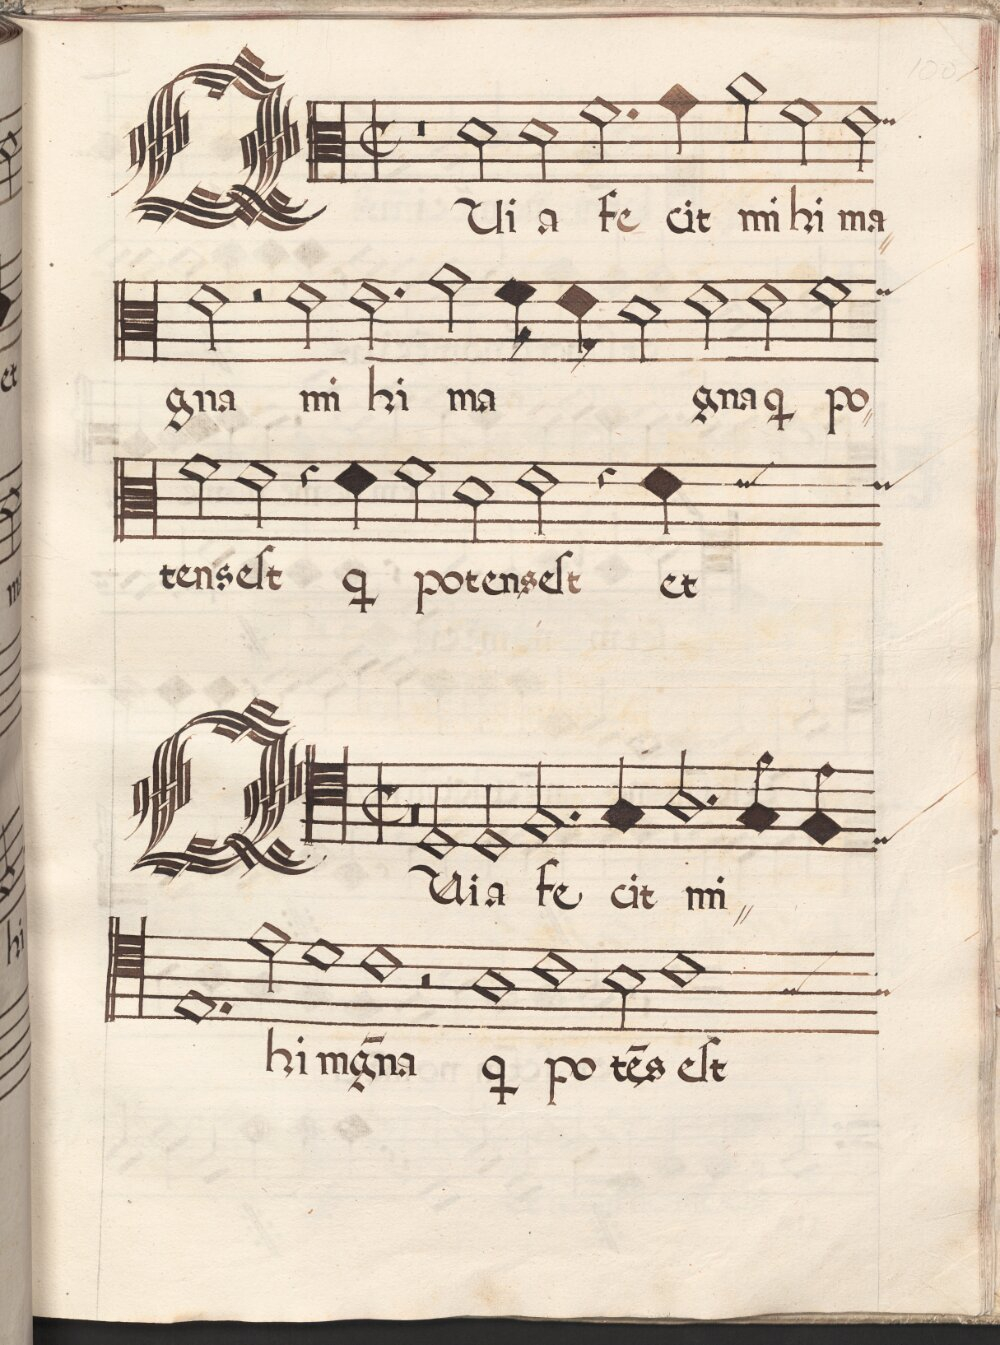 100
QUi a fe cit mi hi ma
gna mi hi ma gna q̃ po
tens est q̃ potens est et
QUi a fe cit mi
hi mg̃na q̃ po tẽs est